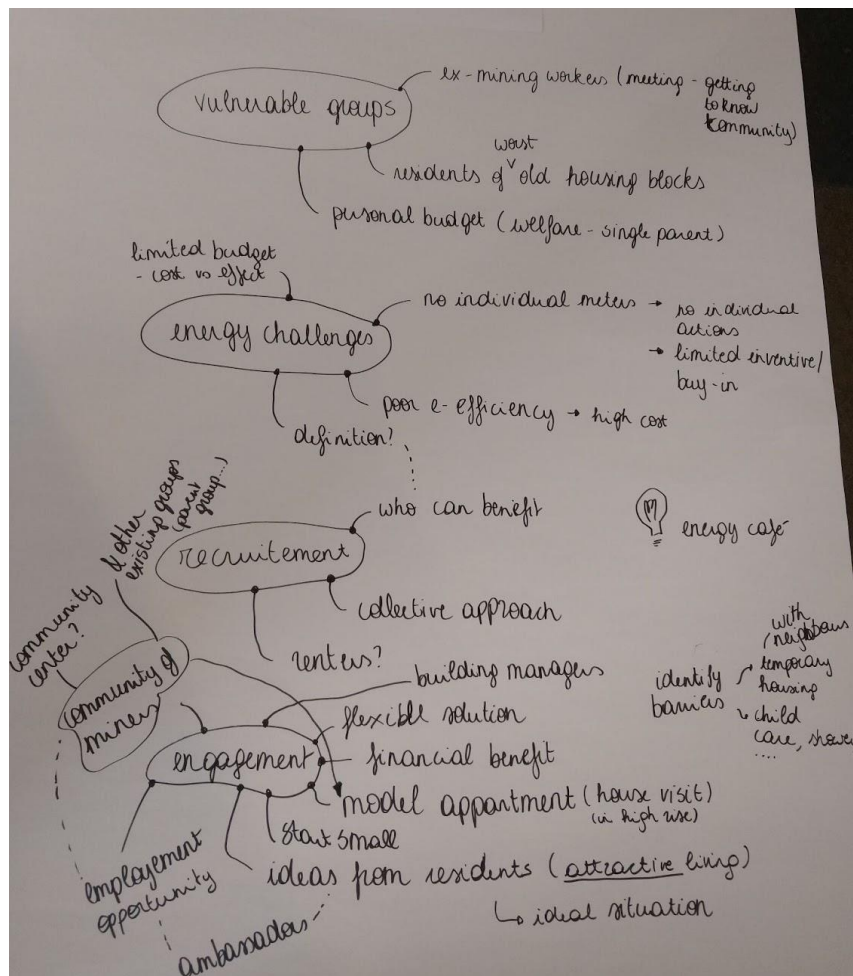 ex-mining workers (meeting - getting
to know
community)
vulnerable groups
worst
residents of old housing blocks
personal budget (welfare - single parent)
limited budget
- cost vs effect
no individual meters → no individual
actions
→ limited inventive/
buy-in
energy challenges
poor e-efficiency → high cost
definition?
who can benefit
recruitement
energy café
collective approach
renters?
& other
existing groups
(parent
group...)
community
center?
community of
miners
building managers
flexible solution
engagement
financial benefit
model appartment (house visit)
(in high rise)
start small
ideas from residents (attractive living)
↳ ideal situation
employement
opportunity
ambassaders
identify
barriers
with
neighbours
temporary
housing
child
care, shower
....